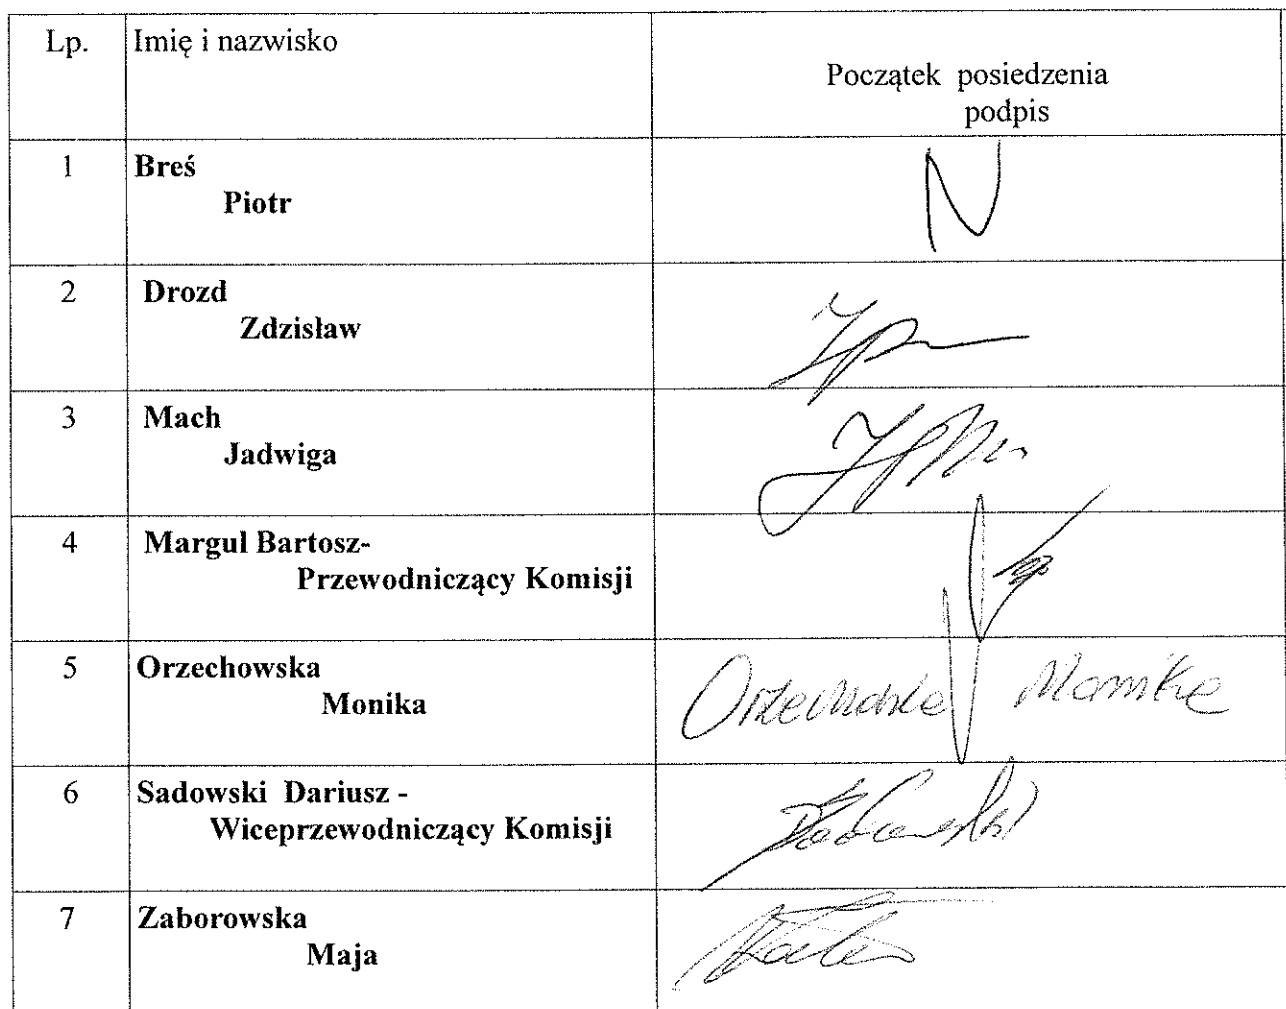 Lp.
Imię i nazwisko
Początek posiedzenia
podpis
1
Breś
Piotr
N
2
Drozd
Zdzisław
3
Mach
Jadwiga
4
Margul Bartosz-
Przewodniczący Komisji
5
Orzechowska
Monika
6
Sadowski Dariusz -
Wiceprzewodniczący Komisji
7
Zaborowska
Maja